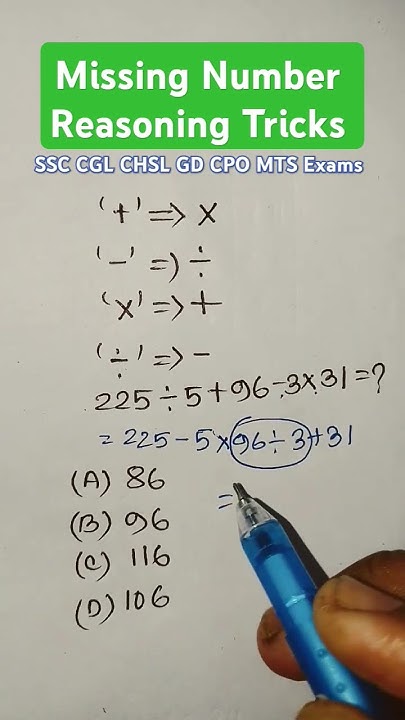 Missing Number
Reasoning Tricks
SSC CGL CHSL GD CPO MTS Exams
'+' => ×
'-' => ÷
'×' => +
'÷' => -
225÷5+96-3×31=?
= 225-5×96÷3+31
(A) 86
(B) 96
(C) 116
(D) 106
=